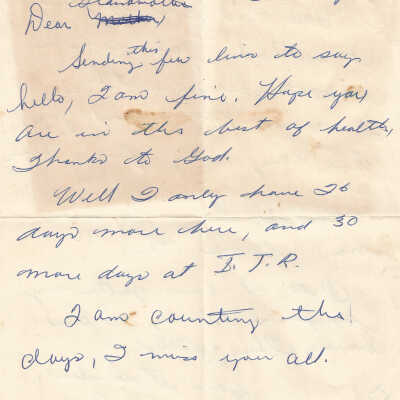 Grandmother
Dear Mother,
Sending this few lines to say
hello, I am fine. Hope you
are in this best of health,
Thanks to God.
Well I only have 26
days more here, and 30
more days at I.T.R.
I am counting the
days, I miss you all.